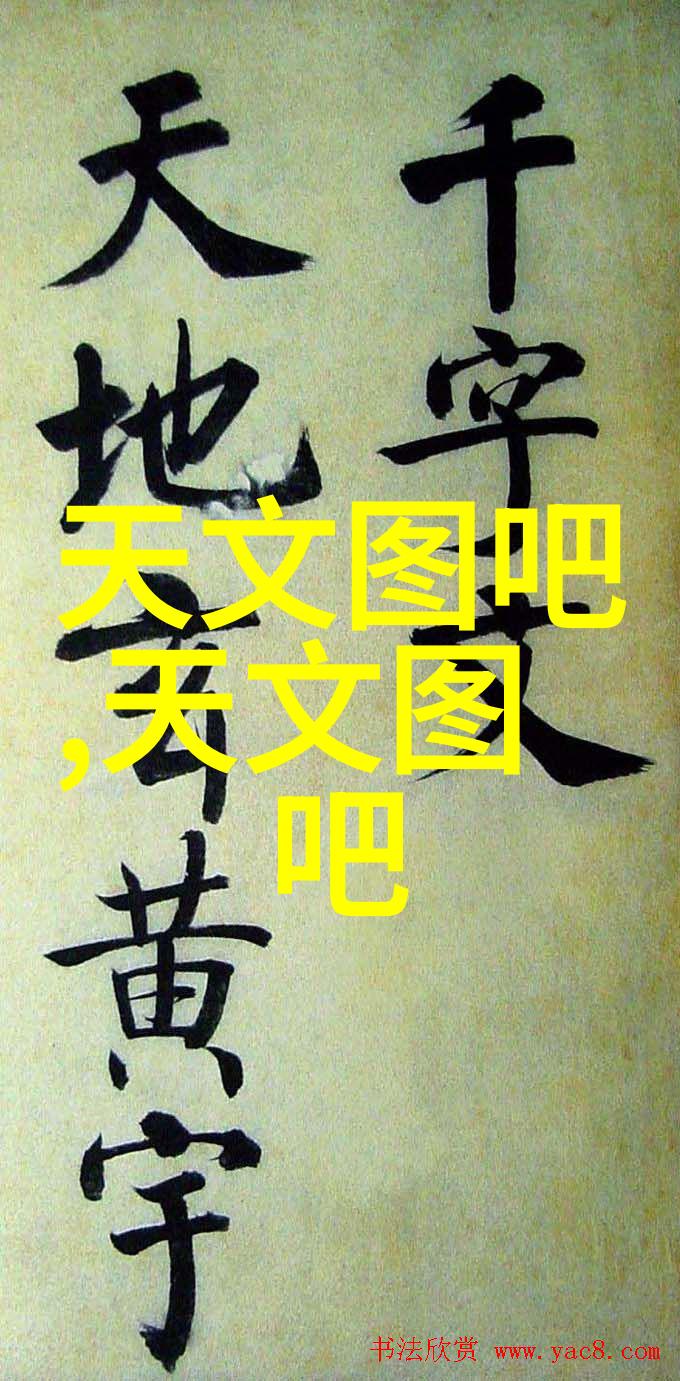 千字文
天地玄黄宇
天文图吧
,天文图
吧
书法欣赏 www.yac8.com